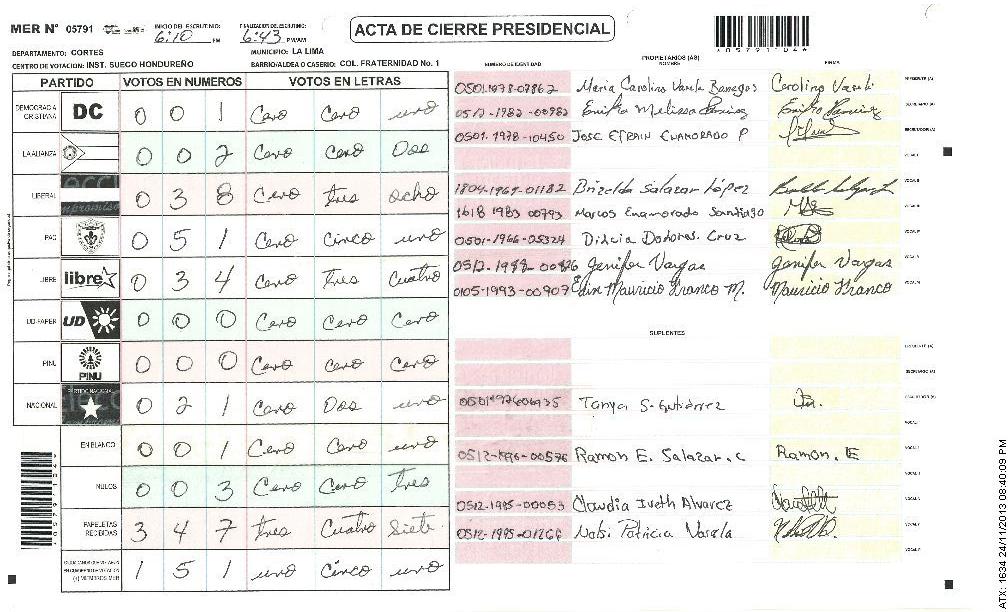 MER Nº 05791 INICIO DEL ESCRUTINIO: 6:10 PM FINALIZACION DEL ESCRUTINIO: 6:43 PM/AM
ACTA DE CIERRE PRESIDENCIAL
DEPARTAMENTO: CORTES MUNICIPIO: LA LIMA
CENTRO DE VOTACION: INST. SUECO HONDUREÑO BARRIO/ALDEA O CASERIO: COL. FRATERNIDAD No. 1
PARTIDO VOTOS EN NUMEROS VOTOS EN LETRAS
DEMOCRACIA CRISTIANA DC 0 0 1 Cero Cero uno
LA ALIANZA 0 0 2 Cero Cero Dos
LIBERAL 0 3 8 Cero tres ocho
PAC 0 5 1 Cero Cinco uno
LIBRE libre 0 3 4 Cero tres Cuatro
UD-FAPER UD 0 0 0 Cero Cero Cero
PINU PINU 0 0 0 Cero Cero Cero
NACIONAL PARTIDO NACIONAL 0 2 1 Cero Dos uno
EN BLANCO 0 0 1 Cero Cero uno
NULOS 0 0 3 Cero Cero tres
PAPELETAS RECIBIDAS 3 4 7 tres Cuatro Siete
(+) MIEMBROS MER 1 5 1 uno Cinco uno
PROPIETARIOS (AS)
NUMERO DE IDENTIDAD NOMBRE FIRMA
0501-1978-07862 Maria Carolina Varela Banegas Carolina Varela PRESIDENTE (A)
0512-1982-00982 Enika Melissa Ramirez Enika Ramirez SECRETARIO (A)
0501-1978-10450 JOSE EFRAIN ENAMORADO P ESCRUTADOR (A)
1804-1969-01182 Brizelda Salazar López
1618 1983 00793 Marcos Enamorado Santiago
0501-1966-05324 Dilcia Dolores Cruz
0512-1988-00826 Jenifer Vargas Jenifer Vargas
0105-1993-00907 Edin Mauricio Franco M. Mauricio Franco
SUPLENTES
PRESIDENTE (A)
SECRETARIO (A)
Tanya S. Gutiérrez ESCRUTADOR (A)
0512-1996-00576 Ramon E. Salazar. C Ramon. E
0512-1995-00053 Claudia Iveth Alvarez
0512-1995-01266 Patricia Varela
ATX: 1634 24/11/2013 08:40:09 PM